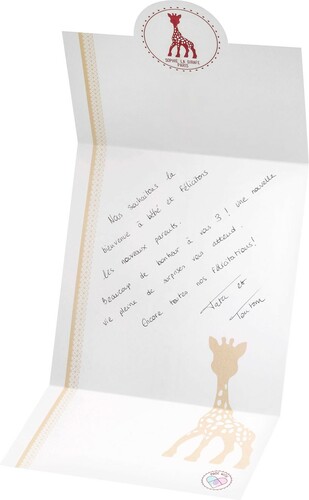 SOPHIE LA GIRAFE
PARIS
Nous souhaitons la
bienvenue à bébé et félicitons
les nouveaux parents.
Beaucoup de bonheur à vous 3 ! une nouvelle
vie pleine de surprises vous attend.
Encore toutes nos félicitations !
Tata et
Tonton